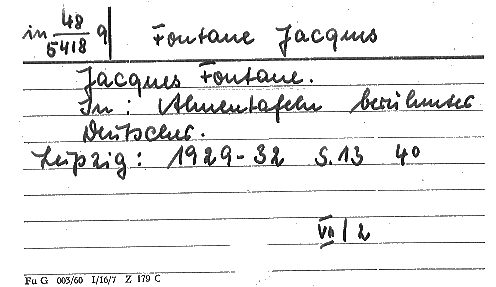 in 48/5418 q Fontane Jacques
Jacques Fontane.
In: Ahnentafeln berühmter
Deutscher.
Leipzig: 1929-32 S. 13 40
VII / 2
Fu G 003/60 I/16/7 Z 179 C